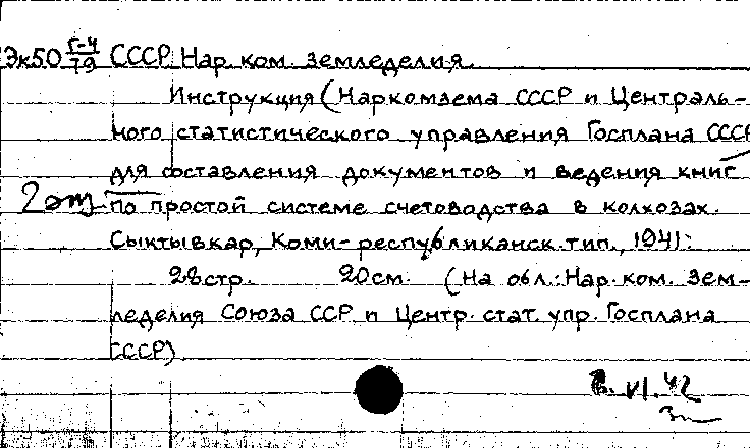 Эк50 Г-4/79 СССР Нар. ком. земледелия.
Инструкция (Наркомзема СССР и Централь-
ного статистического управления Госплана СССР
для составления документов и ведения книг
2 эт по простой системе счетоводства в колхозах.
Сыктывкар, Коми-республиканск. тип., 1941.
28 стр. 20 см. (На обл.: Нар. ком. Зем-
леделия Союза ССР и Центр. стат. упр. Госплана
СССР).
VI. 42